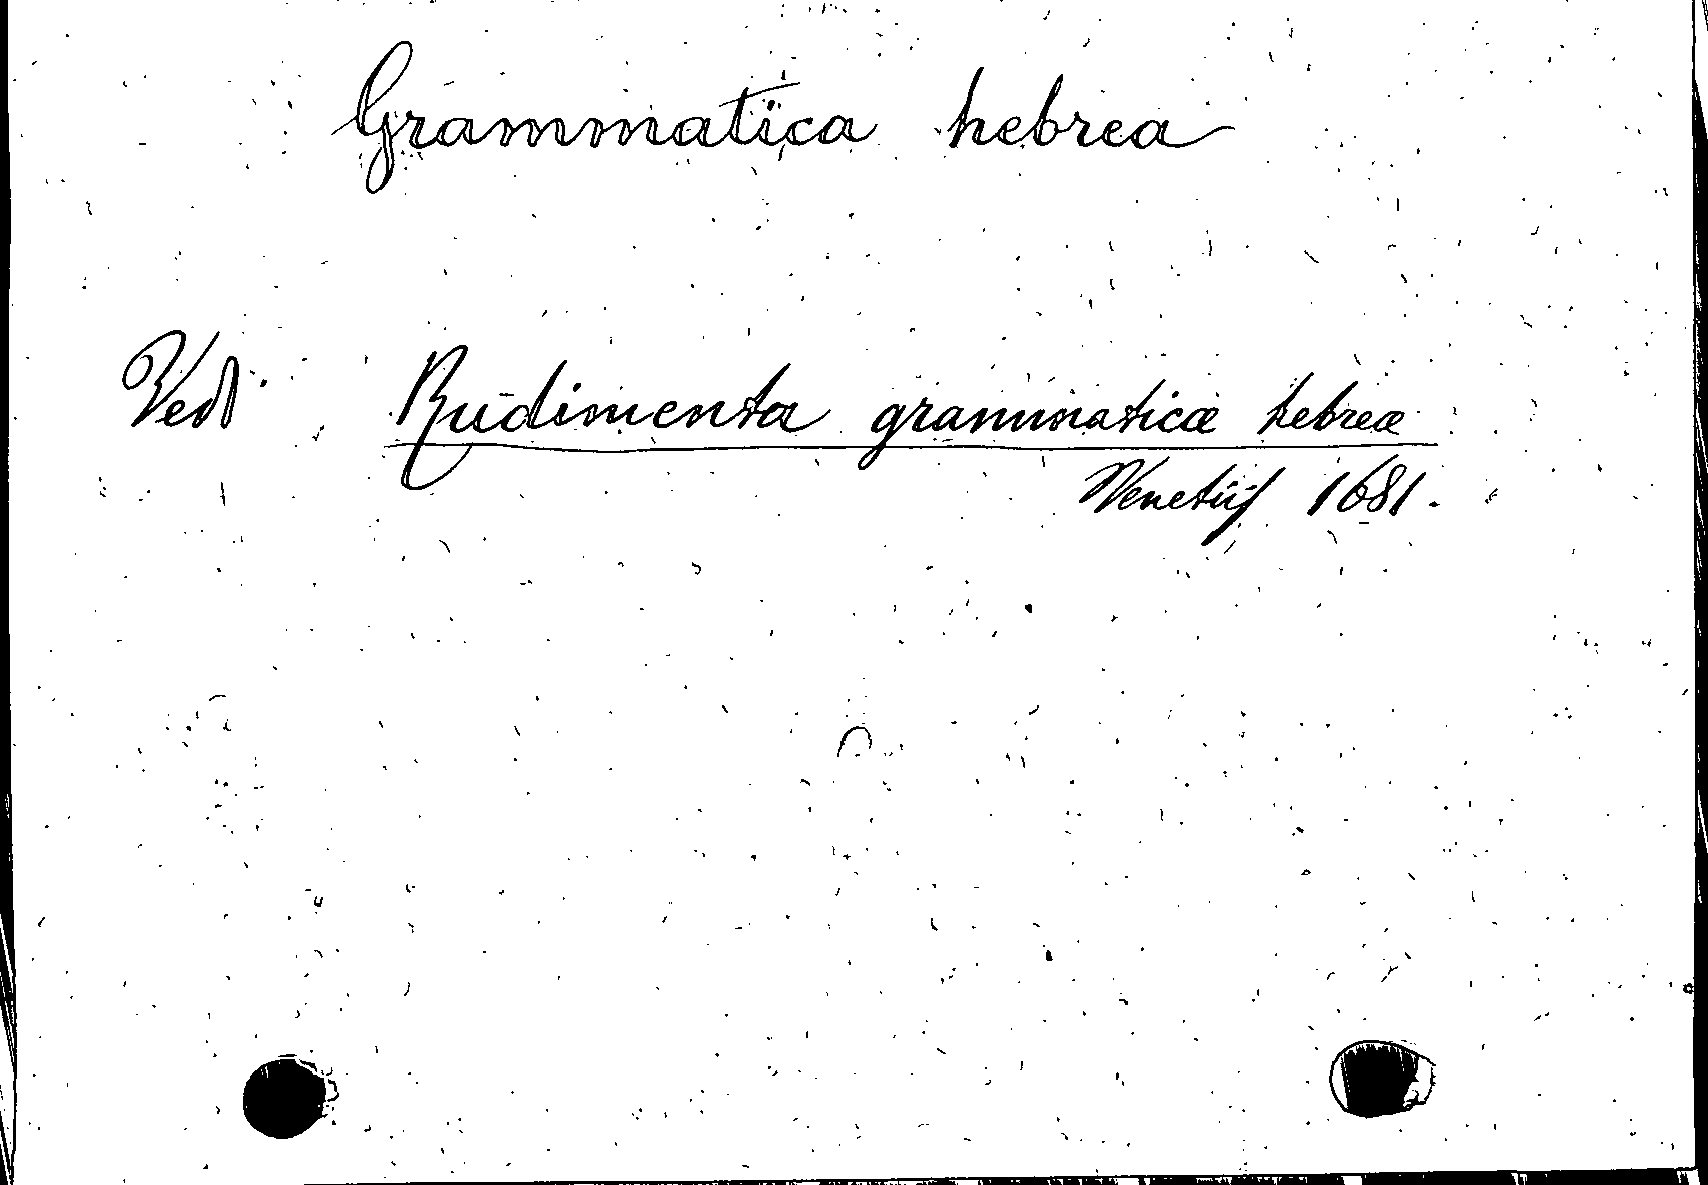 Grammatica hebrea
Vedi Rudimenta grammaticæ hebreæ
Venetiis 1681.